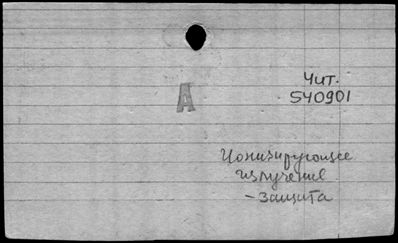 Чит.
540901
А
Ионизирующее
излучение
- защита